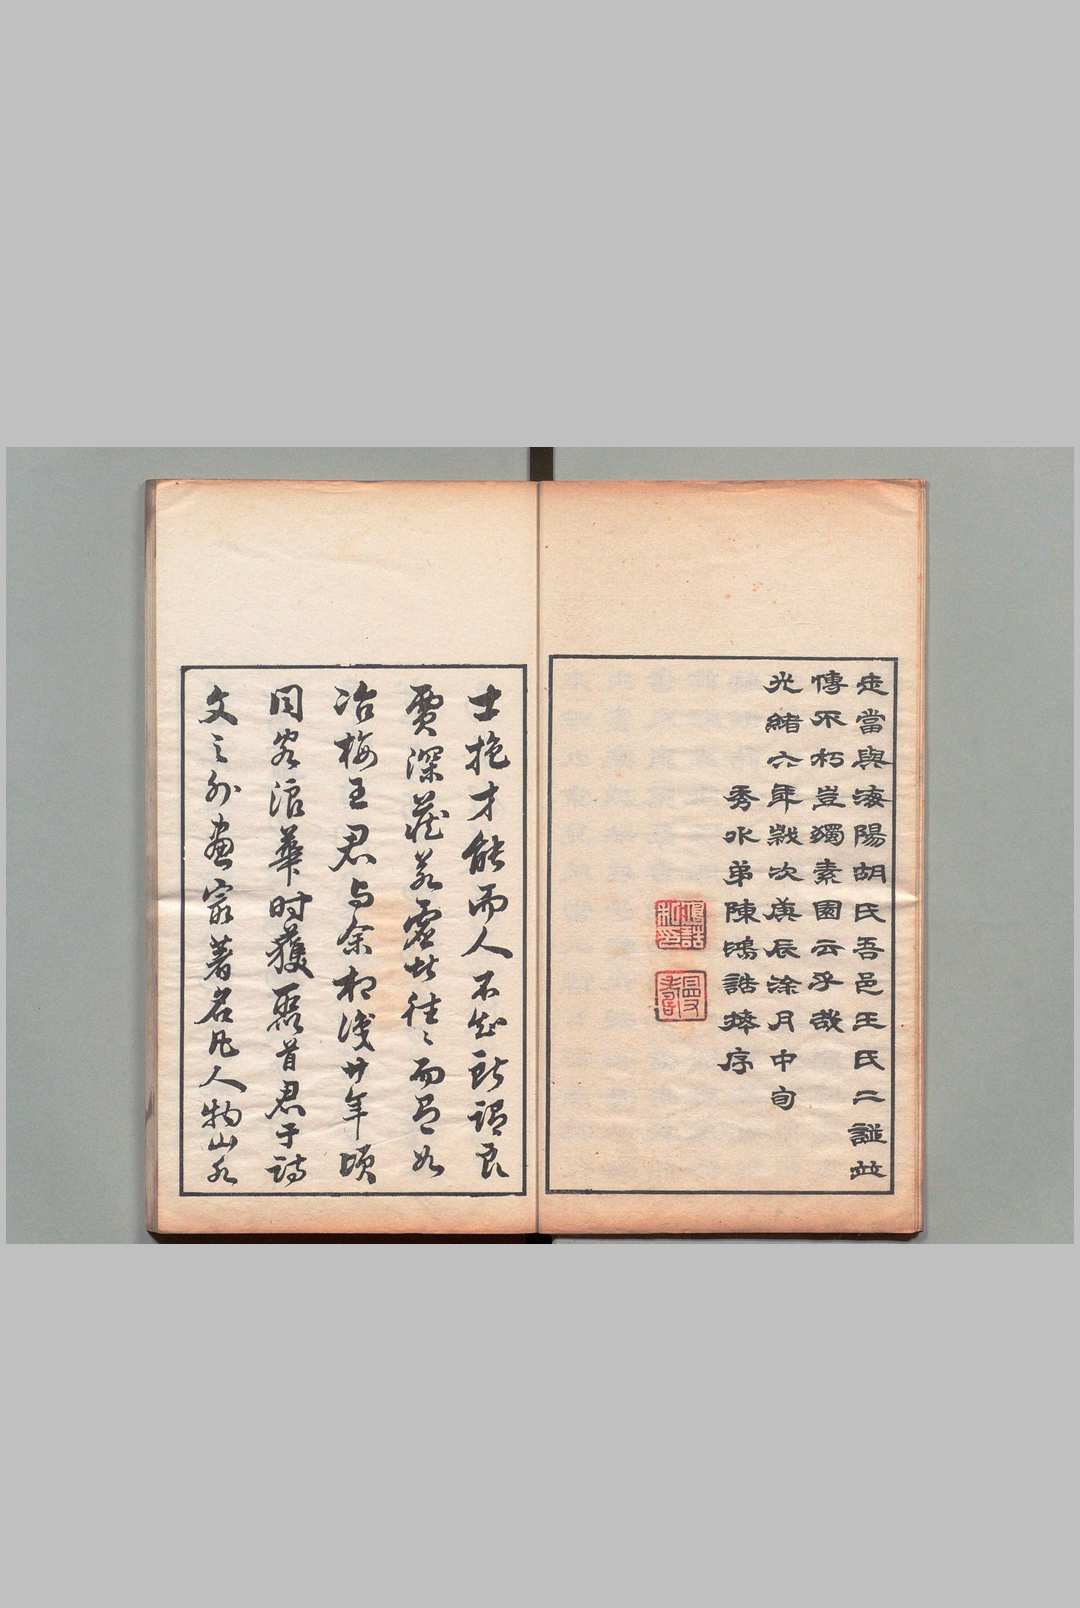 走當與海陽胡氏吾邑王氏二譜並
傳不朽豈獨素園云乎哉
光緒六年歲次庚辰涂月中旬
秀水弟陳鴻誥撰序
士抱才能而人不知所謂良
賈深藏若虛此往〻而是如
冶梅王君与余相識廿年頃
同客浪華时獲聚首君于詩
文之外画最著名凡人物山水